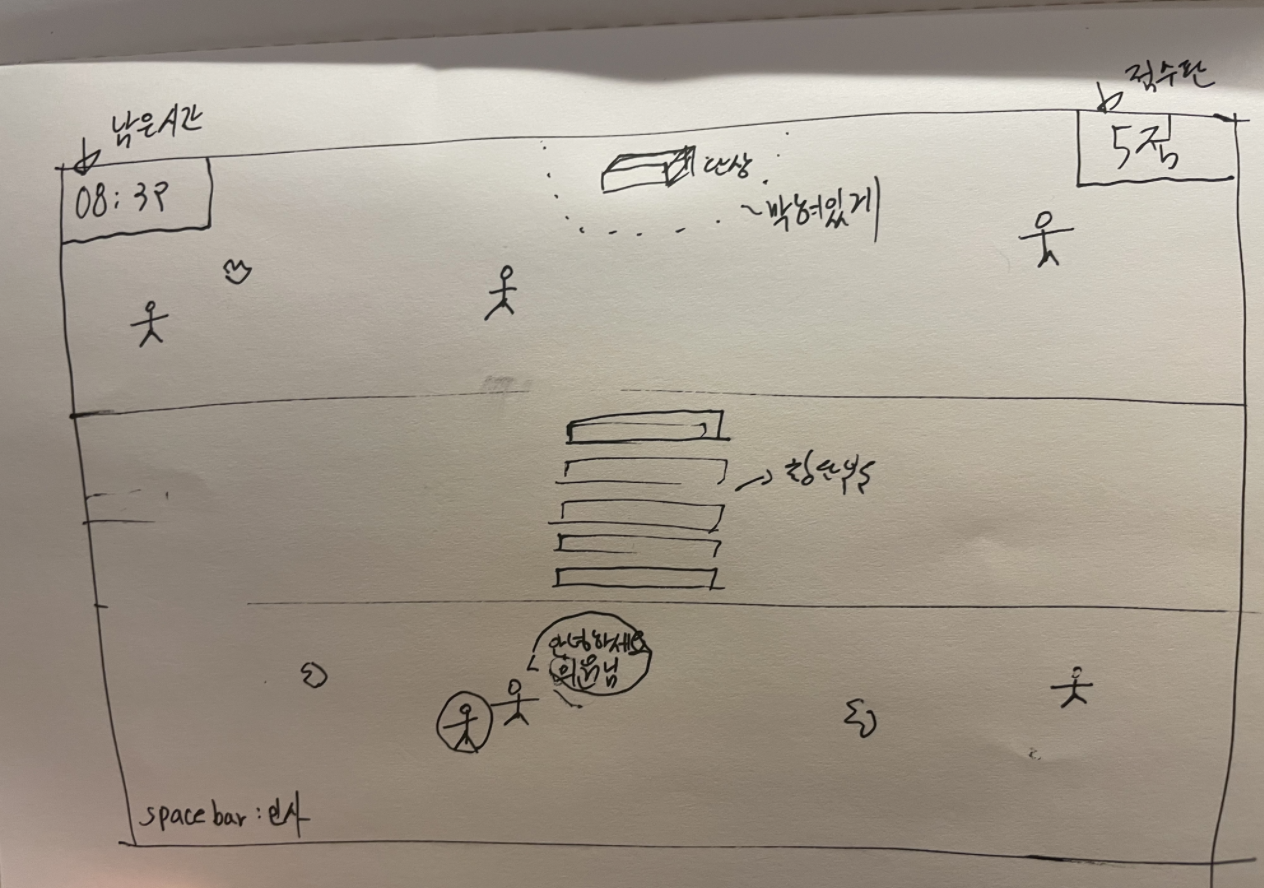 남은시간
점수판
08:39
5점
단상
~박혀있게
횡단보도
안녕하세요
의원님
spacebar : 인사